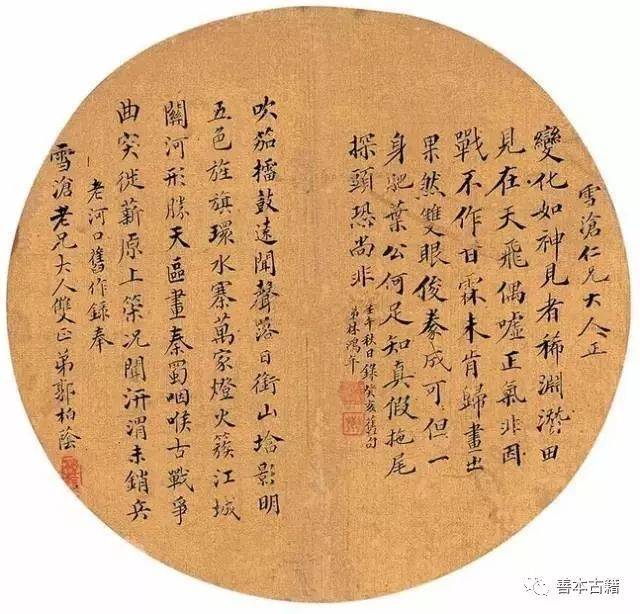 雪滄仁兄大人正
變化如神見者稀淵潛田
見在天飛偶噓正氣非因
戰不作甘霖未肯歸畫出
果然雙眼俊豢成可但一
身肥葉公何足知真假拖尾
探頭恐尚非
壬午秋日錄癸亥舊句
弟林鴻年
吹笳擂鼓遠聞聲落日銜山堞影明
五色旌旗環水寨萬家燈火簇江城
關河形勝天區畫秦蜀咽喉古戰爭
曲突徙薪原上策況聞汧渭未銷兵
老河口舊作錄奉
雪滄老兄大人雙正弟郭柏蔭
善本古籍